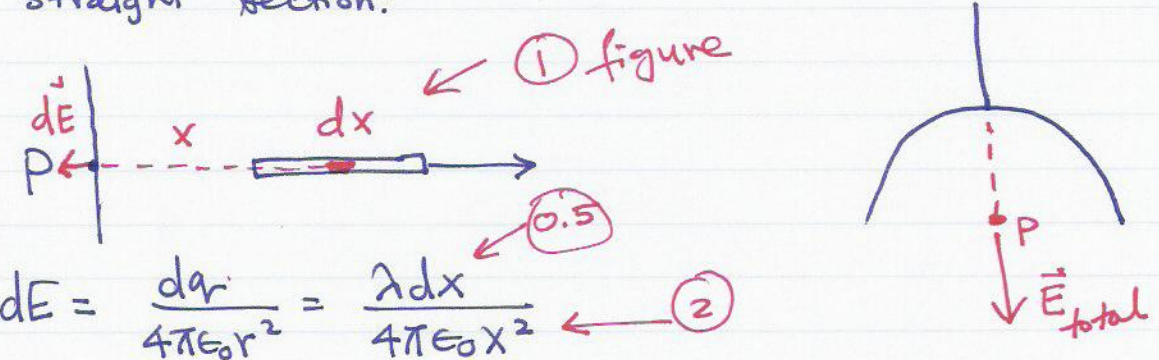 straight section.
① figure
dE⃗
x
dx
P
0.5
dE = dq/4πϵ₀r² = λdx/4πϵ₀x²
②
P
E⃗total